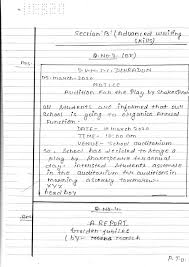 Section 'B' (Advanced writing
skills)
Q.No.3. (or)
Ans.
D.V.M.P.S. DEHRADUN
05-march-2020
NOTICE
Audition for the Play by Shakespeare
All Students are informed that our
School is going to organise Annual
Function.
DATE- 10 march 2020
TIME- 10:00 AM
VENUE- Auditorium
So, School has decided to stage a
play by Shakespeare for annual
day. Intrested Students assemble
in the auditorium for auditions in
morning assembly tomorrow.
XYZ
head boy
Q.No.4.
Ans
A REPORT
( by-
P.T.O.